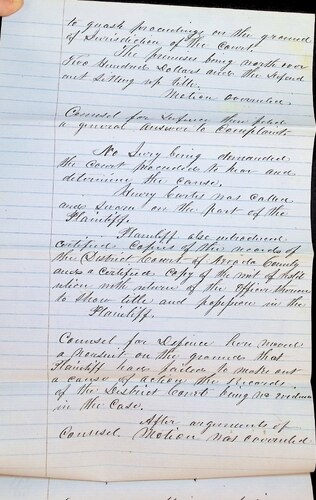 to quash proceedings on the ground
of Jurisdiction of the Court.
The premises being worth over
Two Hundred Dollars and the Defend
ant setting up title.
Motion overruled.
Counsel for Defence then filed
a general answer to Complaint.
No Jury being demanded
the Court proceeded to hear and
determine the cause.
Henry Curtis was called
and sworn on the part of the
Plaintiff.
Plaintiff also introduced
certified copies of the records of
the District Court of Nevada County
and a certified copy of the writ of restit
ution with return of the officer thereon
to show title and possession in the
Plaintiff.
Counsel for Defence here moved
a nonsuit on the grounds that
Plaintiff had failed to make out
a cause of action the Records
of the District Court being no evidence
in the case.
After arguments of
Counsel. Motion was overruled